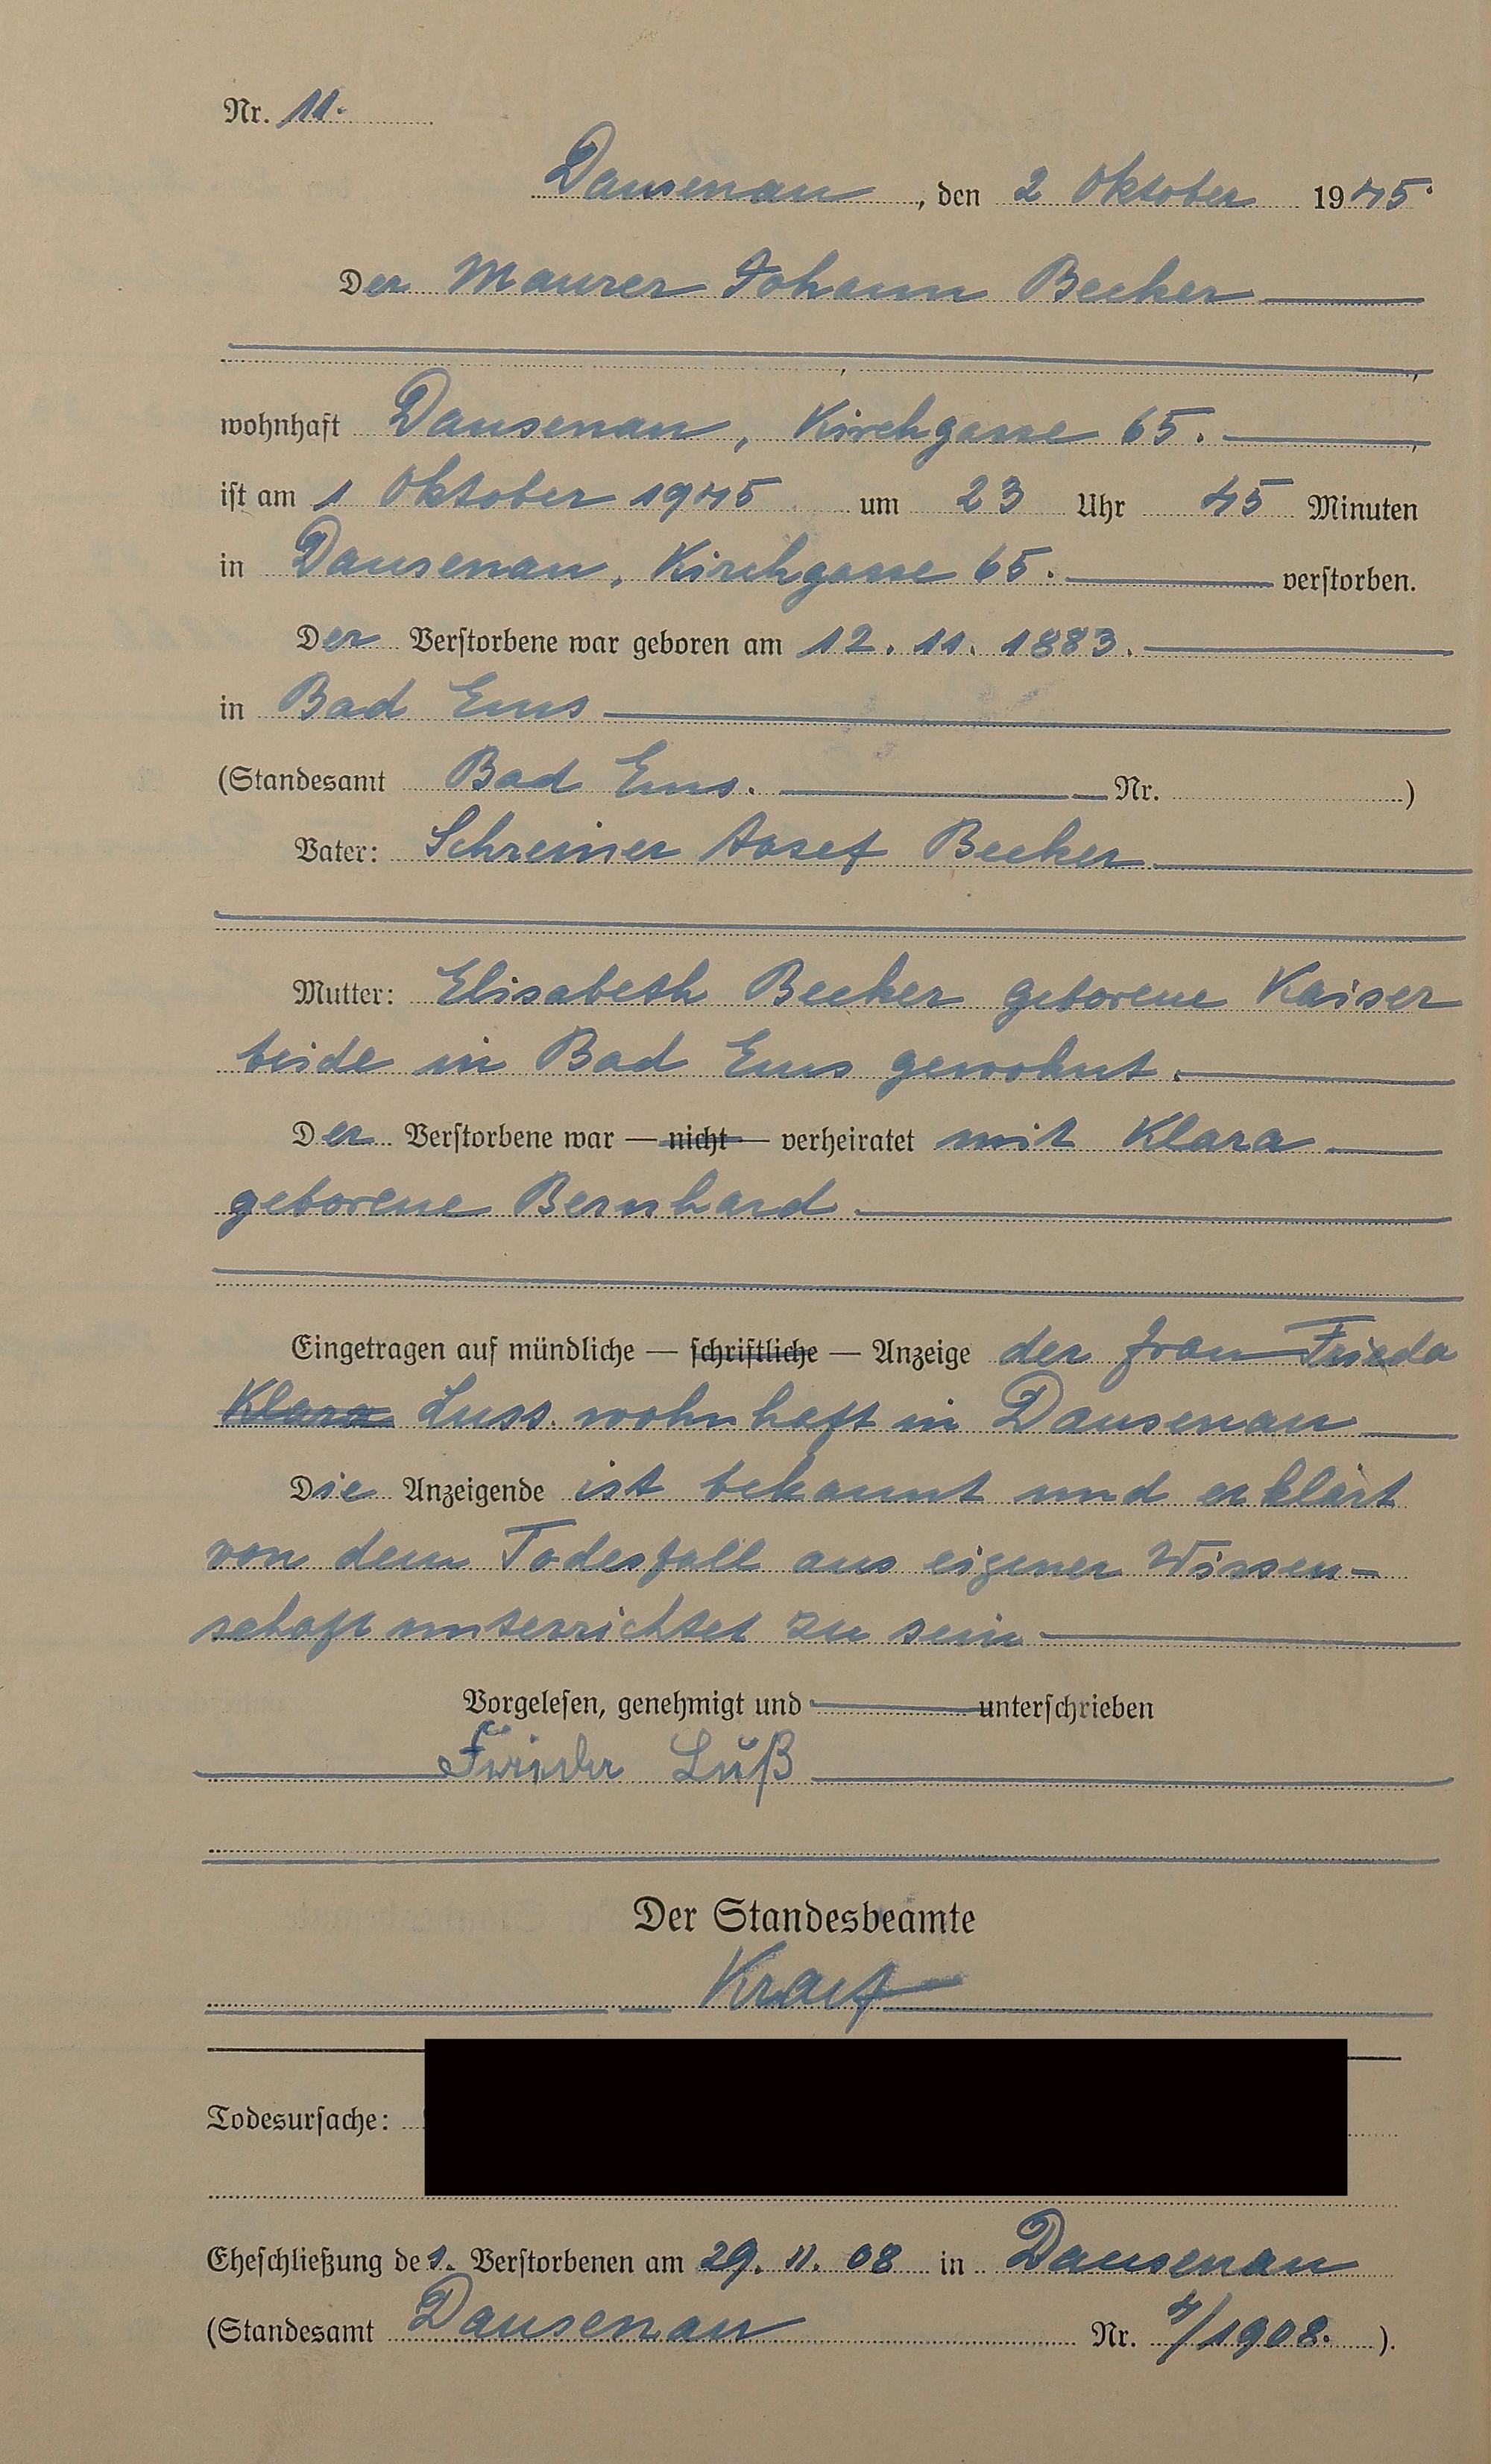 Nr. 11.
Dausenau, den 2 Oktober 1945.
Der Maurer Johann Becker
wohnhaft Dausenau, Kirchgasse 65.
ist am 1 Oktober 1945 um 23 Uhr 45 Minuten
in Dausenau, Kirchgasse 65. verstorben.
Der Verstorbene war geboren am 12. 11. 1883.
in Bad Ems
(Standesamt Bad Ems. Nr. )
Vater: Schreiner Josef Becker
Mutter: Elisabeth Becker geborene Kaiser
beide in Bad Ems gewohnt.
Der Verstorbene war — nicht — verheiratet mit Klara
geborene Bernhard
Eingetragen auf mündliche — schriftliche — Anzeige der Frau Frieda
Klara Luss. wohnhaft in Dausenau
Die Anzeigende ist bekannt und erklärt
von dem Todesfall aus eigener Wissen-
schaft unterrichtet zu sein
Vorgelesen, genehmigt und unterschrieben
Frieda Luß
Der Standesbeamte
Kraft
Todesursache:
Eheschließung des. Verstorbenen am 29. 11. 08 in Dausenau
(Standesamt Dausenau Nr. 4/1908. ).